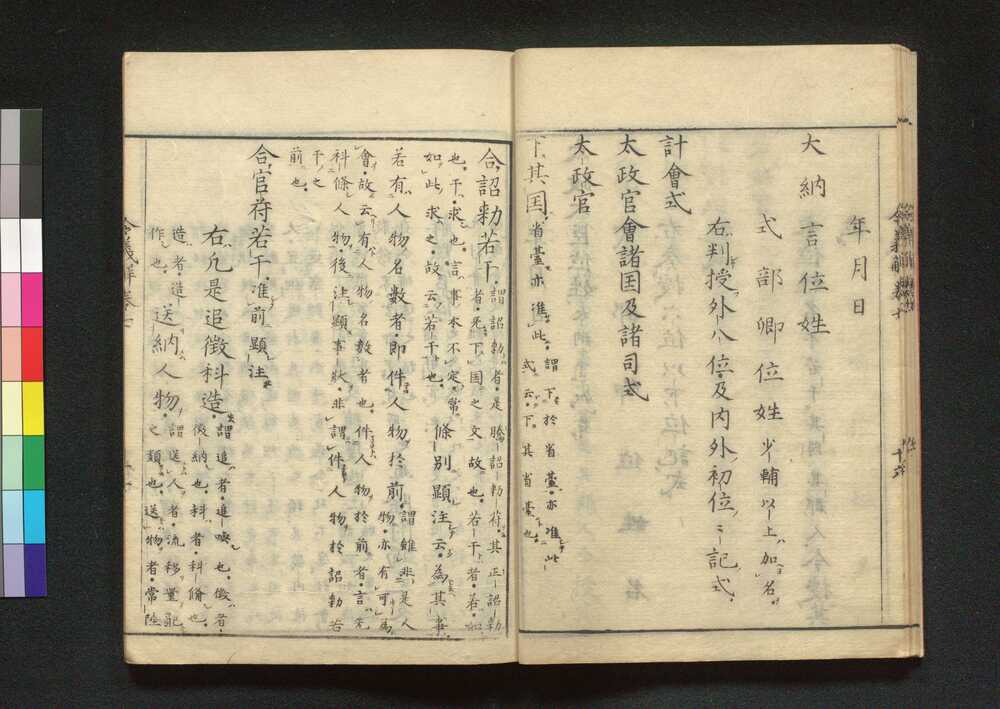 年月日
大納言位姓
式部卿位姓 少輔以上加名
右判授外八位及内外初位々記式
計會式
太政官會諸国及諸司式
太政官
下其国 省臺亦准此 謂下於省臺亦准此
式云下其省臺也
合詔勅若干 謂詔勅者是謄詔勅符其正詔勅
者无下国之文故也若干者若如
也干求也言事本不定常
如此求之故云若干也 條別顯注云為其事
若有人物名數者即件人物於前 謂雖非是人
物亦有可為
會故云有人物名數者也件人物於前者言先
科條人物後法顯事狀非謂件人物於詔勅若
干之
前也
合官符若干准前顯注
右凡是追徴科造 謂追者追喚也徴者
徴納也科者科脩也
造者造
作也 送納人物之類也 謂送人者流移量配
送物者常陸